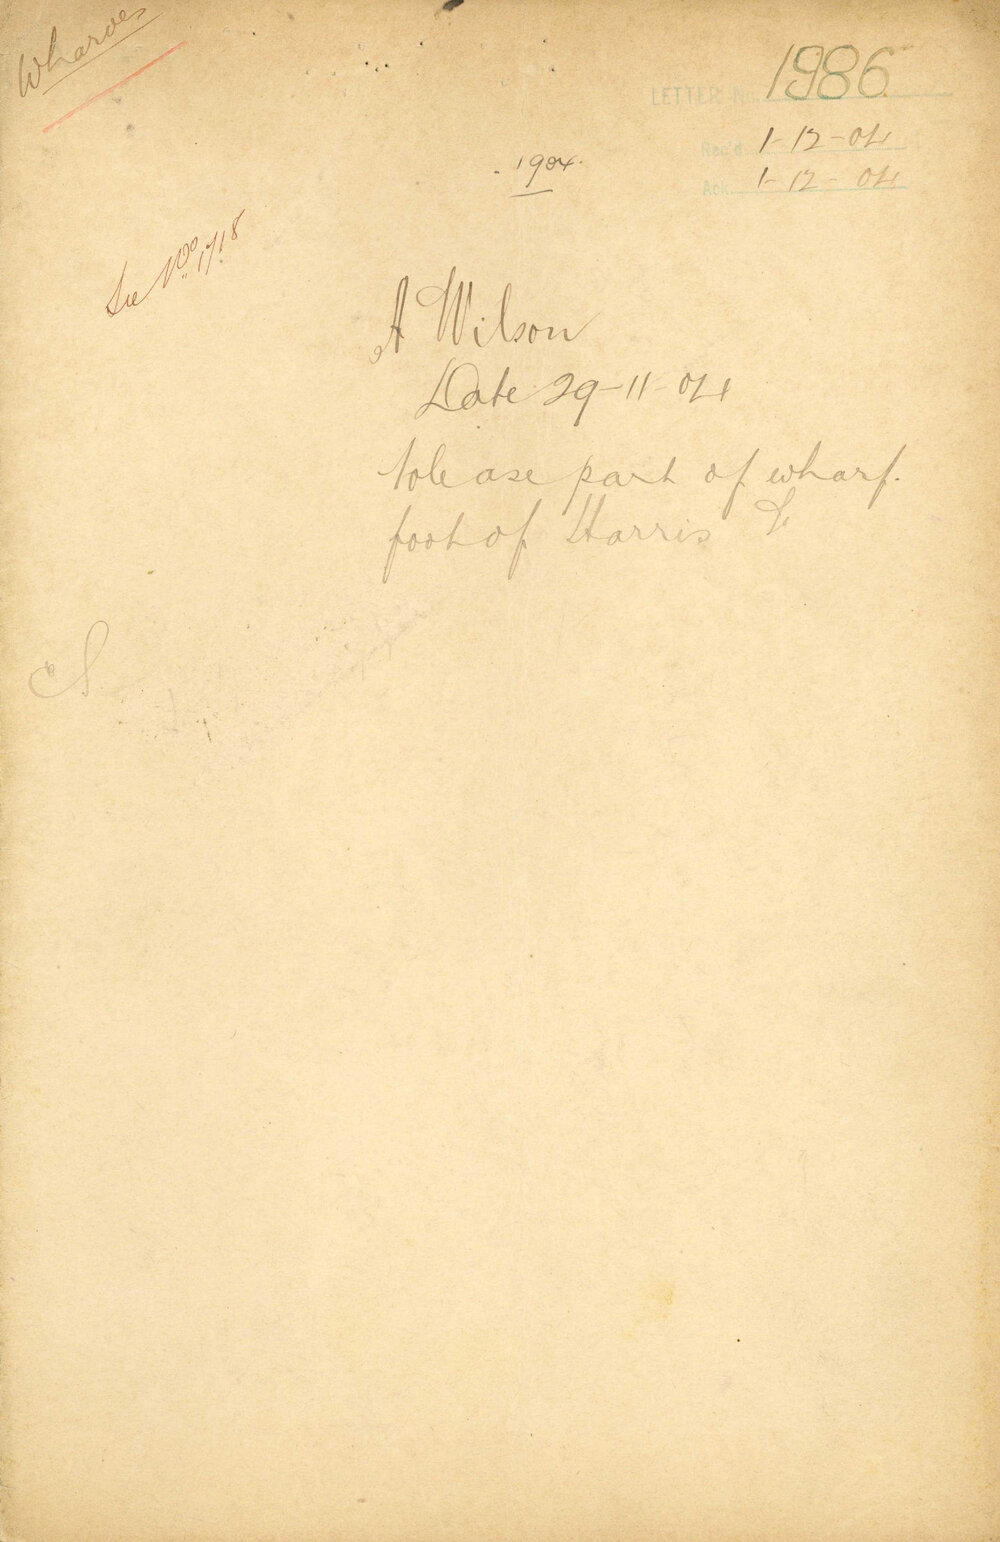 Wharves
LETTER No. 1986
Rec'd. 1-12-04
Ack. 1-12-04
1904
See No. 1718
A Wilson
Date 29-11-04
to lease part of wharf.
foot of Harris St